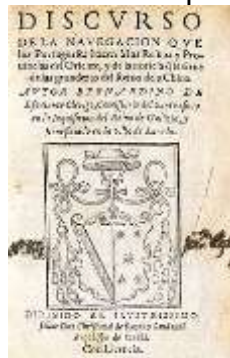 DISCVRSO
DE LA NAVEGACION QVE
los Portugueses hazen à los Reinos y Pro-
uincias del Oriente, y de la noticia q̃ se tiene
de las grandezas del Reino de la China.
AVTOR BERNARDINO DE
Escalante Clerigo, Comissario del
en la Inquisicion del Reino de Galizia, y
en la de
DIRIGIDO AL ILVSTRISSIMO
Señor Don Christoual de Rojas y Sandoual
Arçobispo de Seuilla.
Con Licencia.